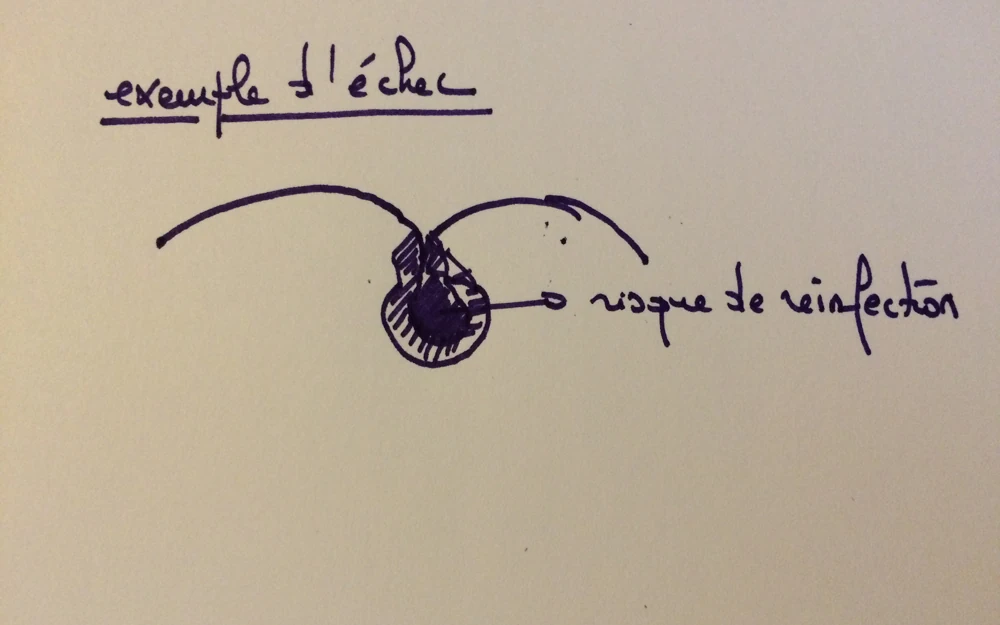 exemple d'échec
risque de reinfection